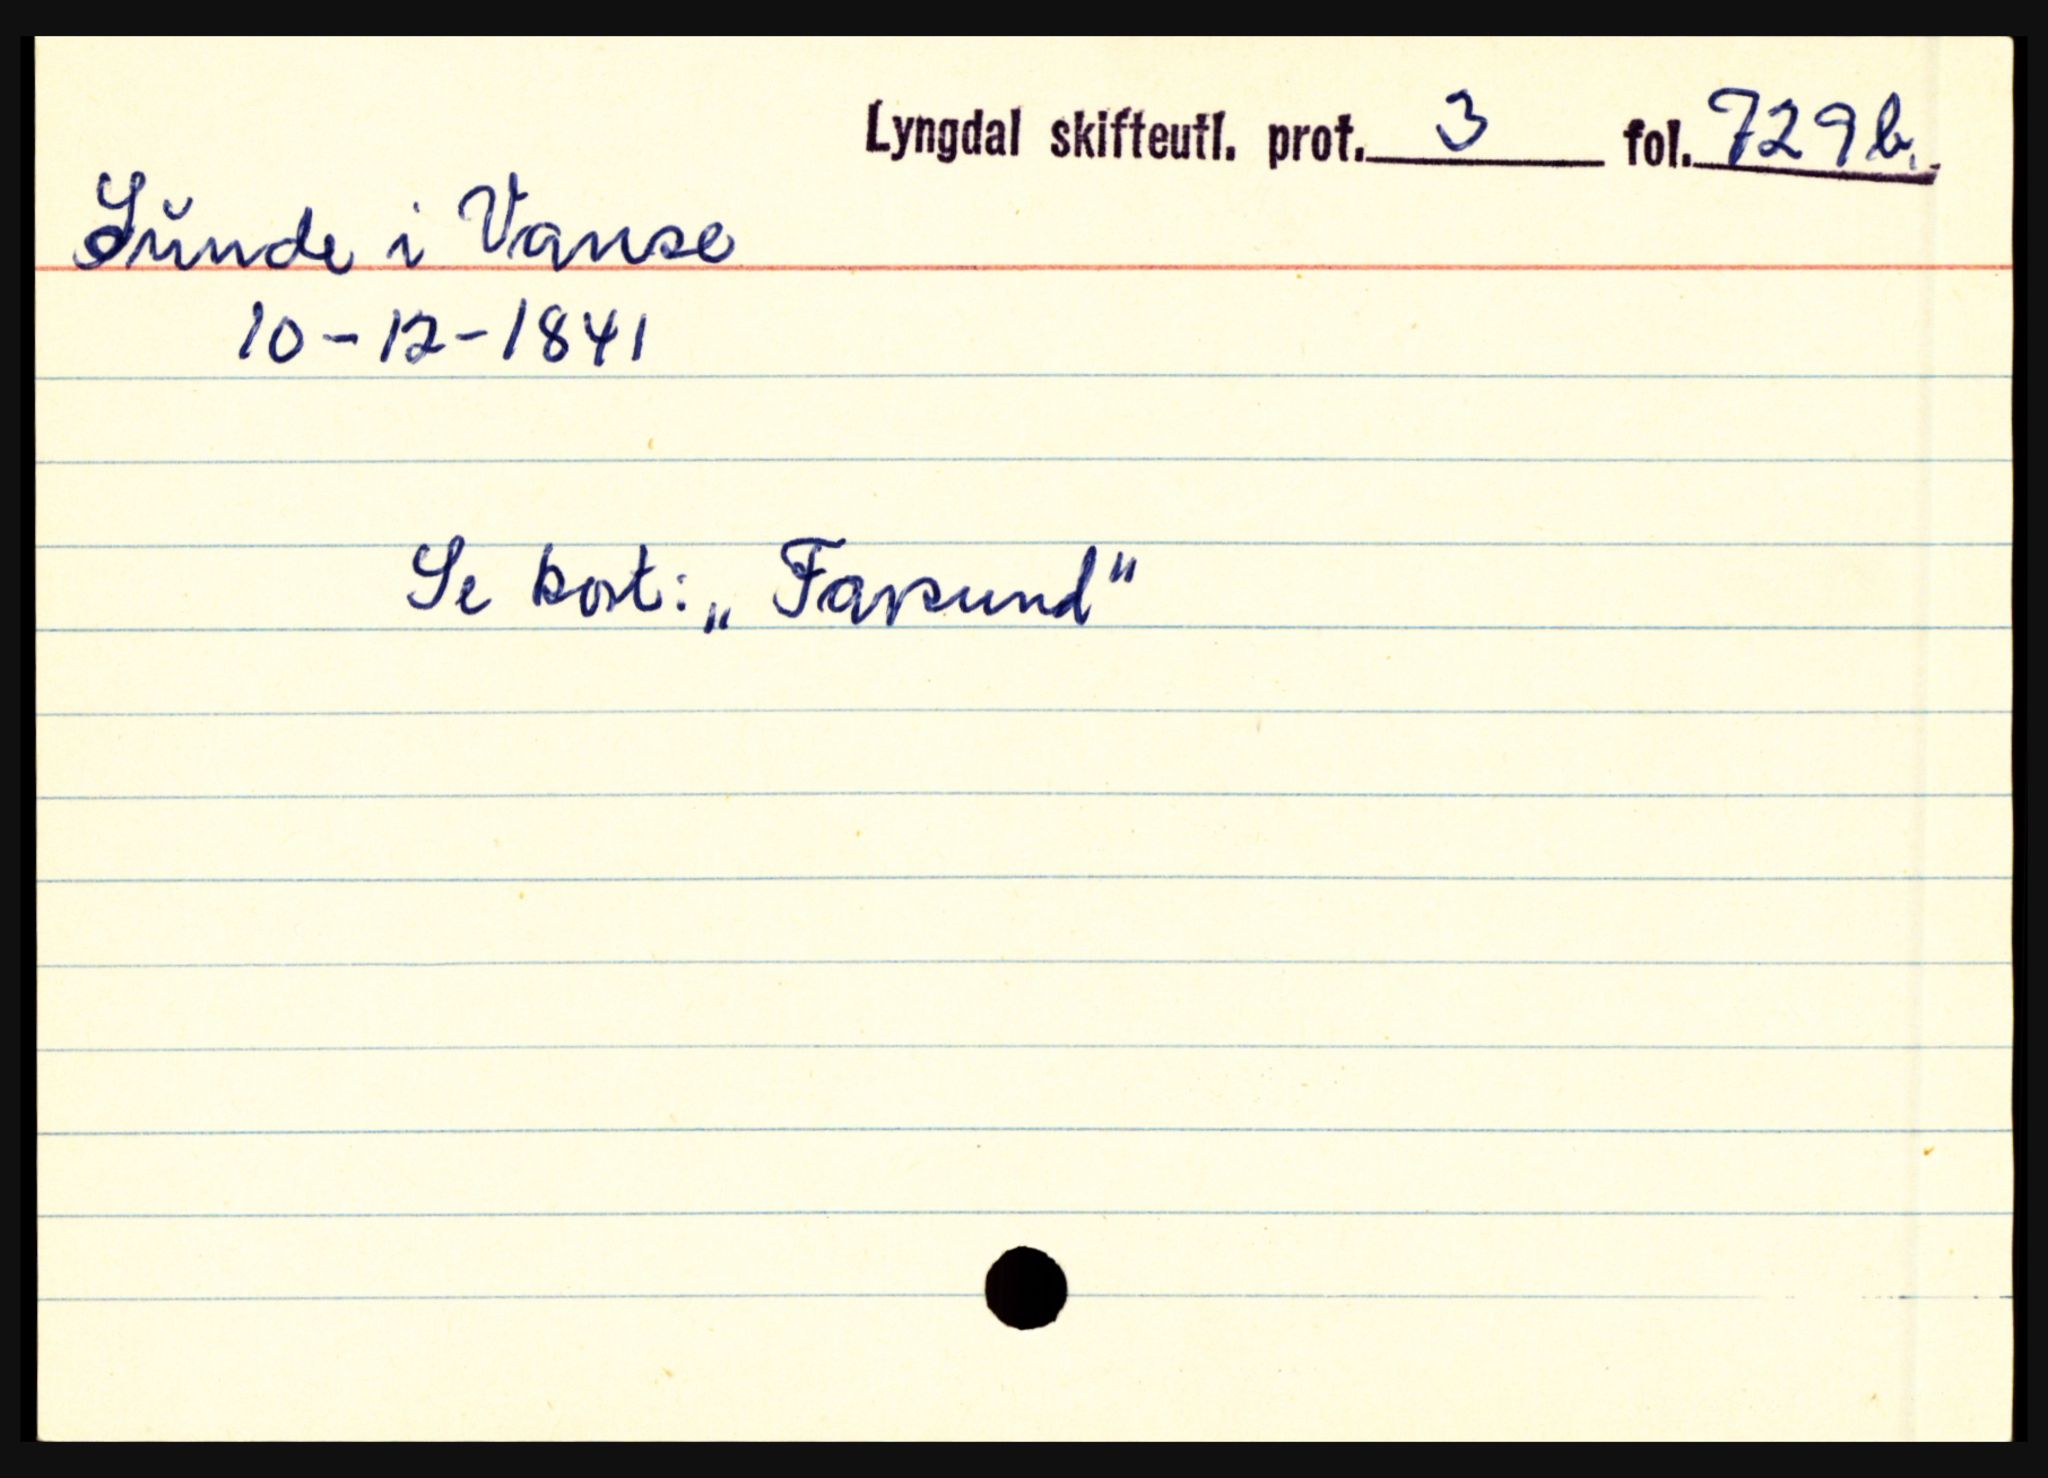 Lyngdal skifteutl. prot. 3 fol. 729 b.
Sunde i Vanse
10-12-1841
Se kort: „Farsund"